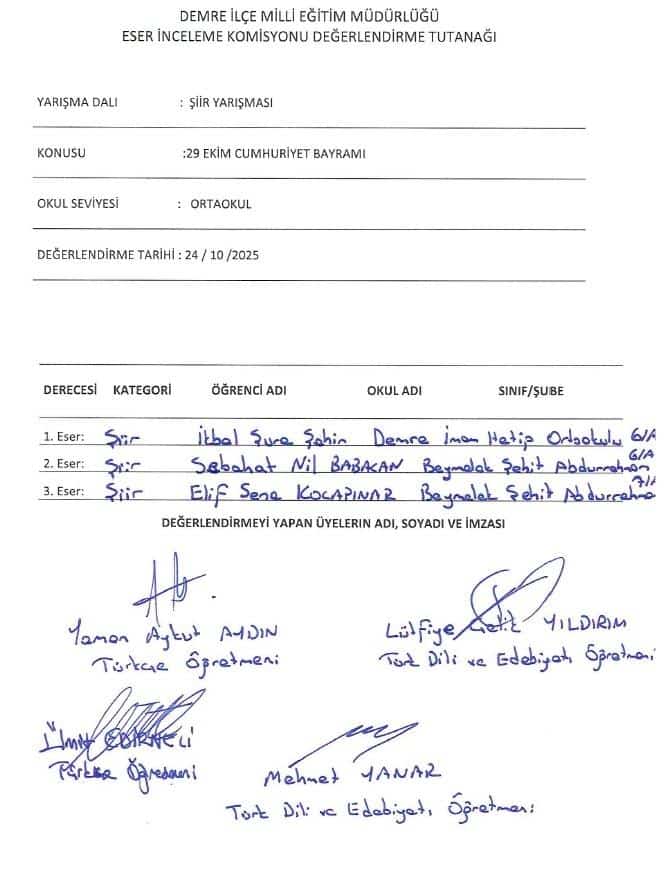 DEMRE İLÇE MİLLİ EĞİTİM MÜDÜRLÜĞÜ
ESER İNCELEME KOMİSYONU DEĞERLENDİRME TUTANAĞI
YARIŞMA DALI : ŞİİR YARIŞMASI
KONUSU :29 EKİM CUMHURİYET BAYRAMI
OKUL SEVİYESİ : ORTAOKUL
DEĞERLENDİRME TARİHİ : 24 / 10 /2025
DERECESİ KATEGORİ ÖĞRENCİ ADI OKUL ADI SINIF/ŞUBE
1. Eser: Şiir İkbal Sure Şahin Demre İmam Hatip Ortaokulu 6/A
2. Eser: Şiir Sebahat Nil BABACAN Beymelek Şehit Abdurrahman 6/A
3. Eser: Şiir Elif Sena KOCAPINAR Beymelek Şehit Abdurrahman 7/A
DEĞERLENDİRMEYİ YAPAN ÜYELERİN ADI, SOYADI VE İMZASI
Yaman Aykut AYDIN
Türkçe Öğretmeni
Lütfiye Çelik YILDIRIM
Türk Dili ve Edebiyatı Öğretmeni
Ümit EDİRNELİ
Türkçe Öğretmeni
Mehmet YANAR
Türk Dili ve Edebiyatı Öğretmeni